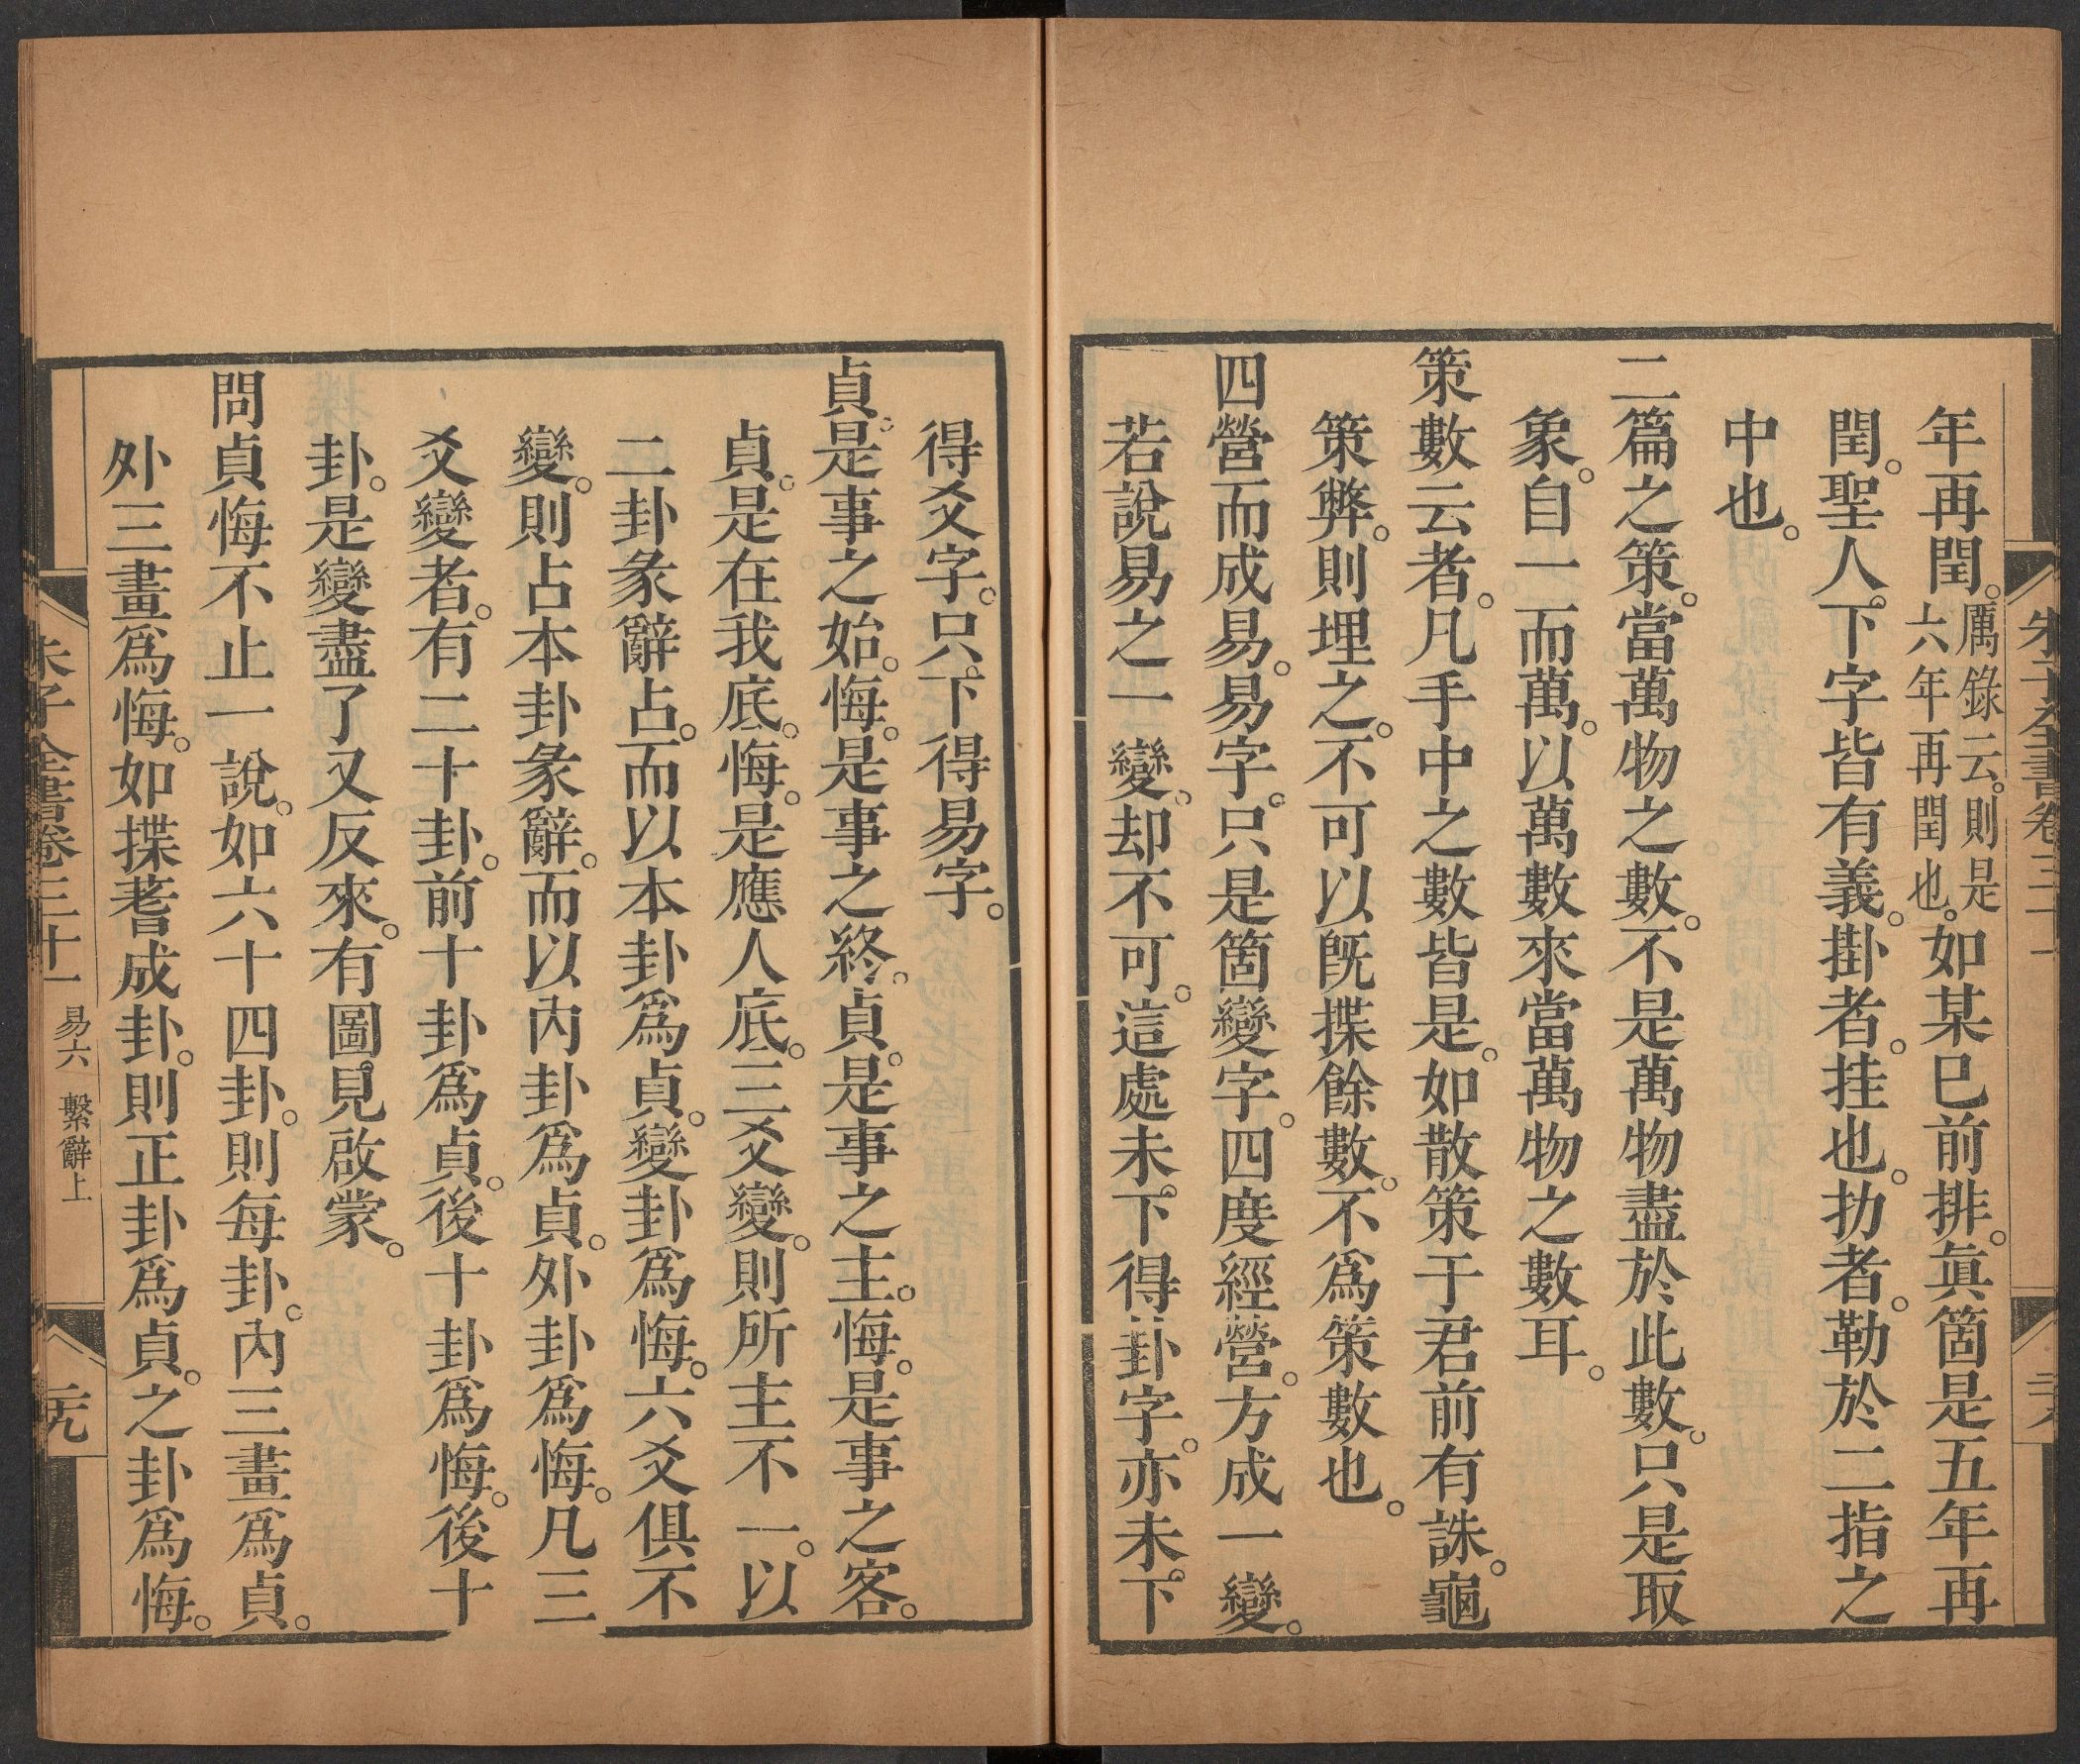 年再閏。厲錄云。則是六年再閏也。如某已前排。眞箇是五年再
閏。聖人。下字皆有義。掛者。挂也。扐者。勒於二指之
中也。
二篇之策。當萬物之數。不是萬物盡於此數。只是取
象。自一而萬。以萬數來當萬物之數耳。
策數云者。凡手中之數皆是。如散策于君前有誅。龜
策弊。則埋之。不可以既揲餘數。不爲策數也。
四營而成易。易字。只是箇變字。四度經營。方成一變。
若說易之一變。却不可。這處未下得卦字。亦未下
得爻字。只下得易字。
貞。是事之始。悔。是事之終。貞。是事之主。悔。是事之客。
貞。是在我底。悔。是應人底。三爻變。則所主不一。以
二卦彖辭占。而以本卦爲貞。變卦爲悔。六爻俱不
變。則占本卦彖辭。而以內卦爲貞。外卦爲悔。凡三
爻變者。有二十卦。前十卦爲貞。後十卦爲悔。後十
卦。是變盡了又反來。有圖。見啟蒙。
問貞悔不止一說。如六十四卦。則每卦。內三畫爲貞。
外三畫爲悔。如揲蓍成卦。則正卦爲貞。之卦爲悔。
朱子全書卷三十一 易六 繫辭上